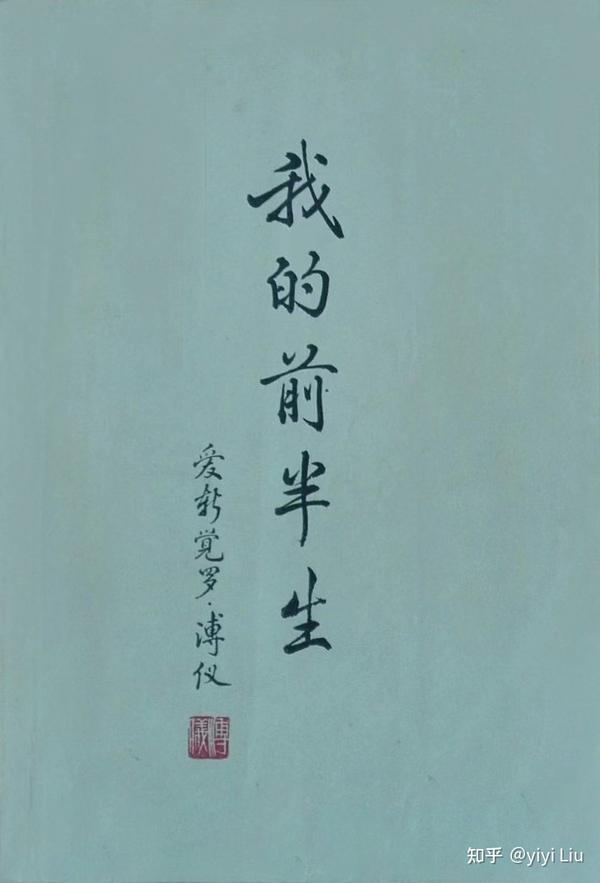 我的前半生
爱新觉罗·溥仪
溥儀
知乎 @yiyi Liu